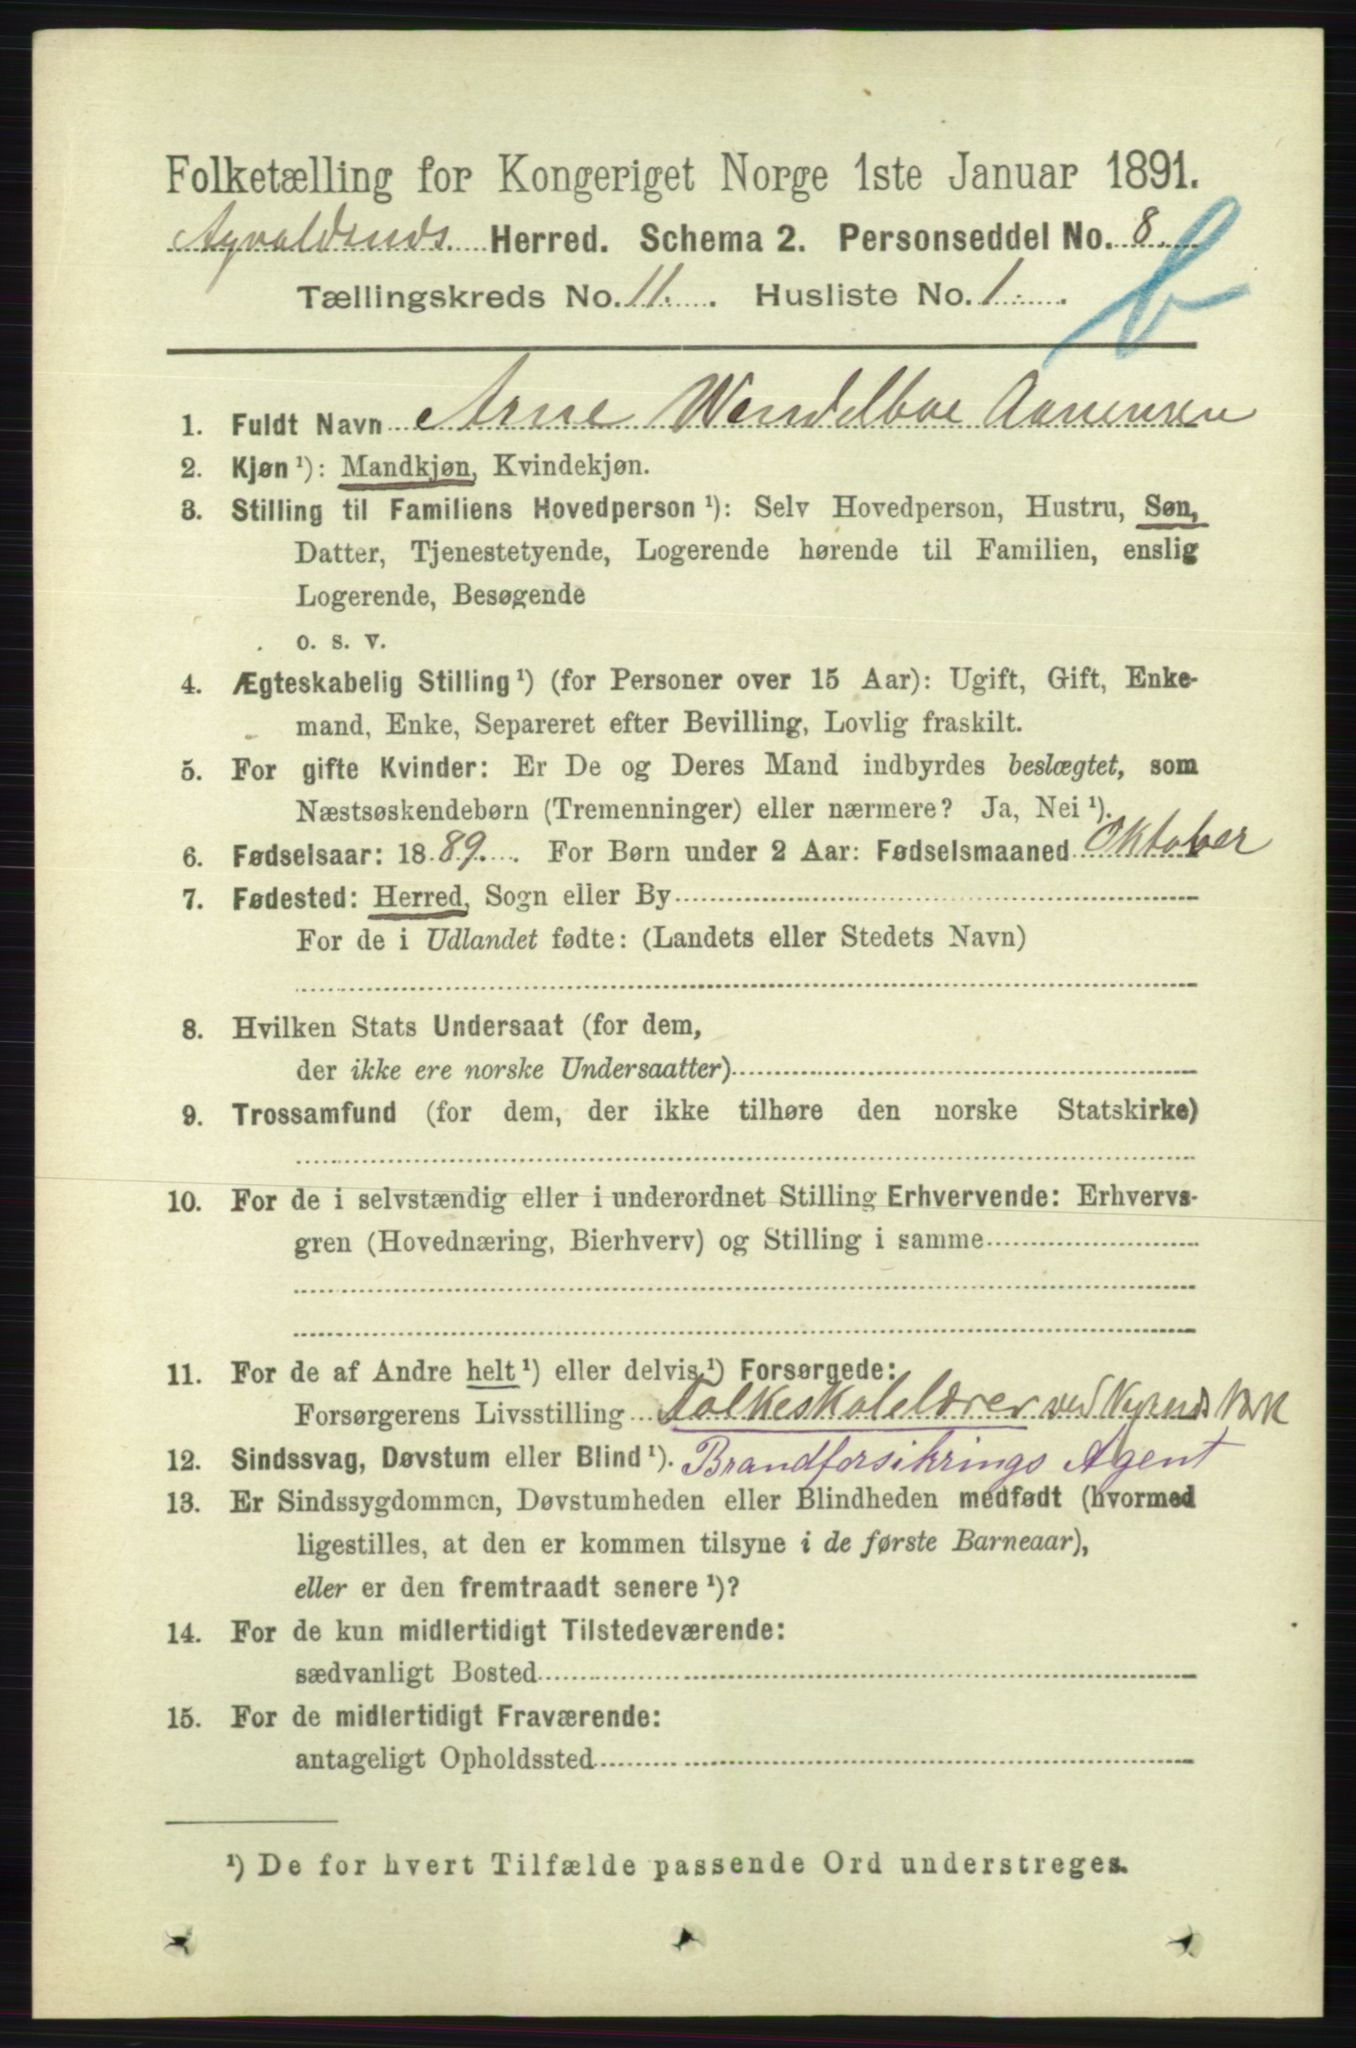 Folketælling for Kongeriget Norge 1ste Januar 1891.
Herred. Schema 2. Personseddel No. 8.
Tællingskreds No. 11. Husliste No. 1.
b
1. Fuldt Navn Arne Wendelboe Aanensen
2. Kjøn ¹): Mandkjøn, Kvindekjøn.
3. Stilling til Familiens Hovedperson ¹): Selv Hovedperson, Hustru, Søn,
Datter, Tjenestetyende, Logerende hørende til Familien, enslig
Logerende, Besøgende
o. s. v.
4. Ægteskabelig Stilling ¹) (for Personer over 15 Aar): Ugift, Gift, Enke-
mand, Enke, Separeret efter Bevilling, Lovlig fraskilt.
5. For gifte Kvinder: Er De og Deres Mand indbyrdes beslægtet, som
Næstsøskendebørn (Tremenninger) eller nærmere? Ja, Nei ¹).
6. Fødselsaar: 1889. For Børn under 2 Aar: Fødselsmaaned Oktober
7. Fødested: Herred, Sogn eller By
For de i Udlandet fødte: (Landets eller Stedets Navn)
8. Hvilken Stats Undersaat (for dem,
der ikke ere norske Undersaatter)
9. Trossamfund (for dem, der ikke tilhøre den norske Statskirke)
10. For de i selvstændig eller i underordnet Stilling Erhvervende: Erhvervs-
gren (Hovednæring, Bierhverv) og Stilling i samme
11. For de af Andre helt ¹) eller delvis ¹) Forsørgede:
Forsørgerens Livsstilling Folkeskolelærer ved
12. Sindssvag, Døvstum eller Blind ¹). Brandforsikrings Agent
13. Er Sindssygdommen, Døvstumheden eller Blindheden medfødt (hvormed
ligestilles, at den er kommen tilsyne i de første Barneaar),
eller er den fremtraadt senere ¹)?
14. For de kun midlertidigt Tilstedeværende:
sædvanligt Bosted
15. For de midlertidigt Fraværende:
antageligt Opholdssted
¹) De for hvert Tilfælde passende Ord understreges.